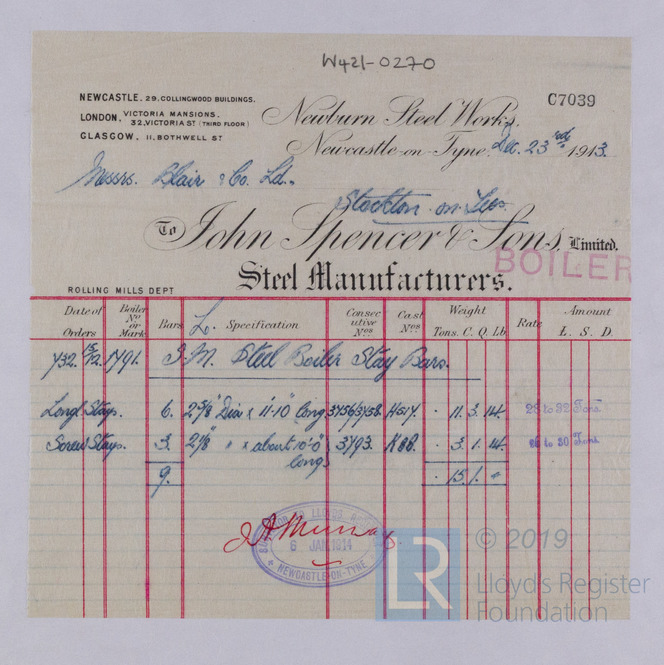 W421-0270
NEWCASTLE. 29. COLLINGWOOD BUILDINGS.
LONDON. VICTORIA MANSIONS.
32, VICTORIA ST (THIRD FLOOR)
GLASGOW. 11. BOTHWELL ST
C7039
Newburn Steel Works,
Newcastle-on-Tyne, Dec. 23rd 1913.
Messrs. Blair & Co. Ld.,
Stockton-on-Tees
To John Spencer & Sons, Limited.
BOILER
Steel Manufacturers.
ROLLING MILLS DEPT
Date of Orders Boiler No or Mark Bars L. Specification Consecutive Nos Cast Nos. Weight Tons. C. Q. Lb Rate Amount £. S. D.
432. 15/12. 1791. S.M. Steel Boiler Stay Bars.
Longl Stays. 6. 2 5/8" Dia x 11'-10" long 3756/3758. H517. . 11. 3. 14. 28 to 32 Tons.
Screw Stays. 3. 2 1/8" " x about 10'-0" long 3793. K88. . 3. 1. 14. 26 to 30 Tons.
9. . 15. 1. "
J. A. Murray.
LLOYDS
6 JAN 1914
NEWCASTLE-ON-TYNE
LR
© 2019
Lloyd's Register
Foundation